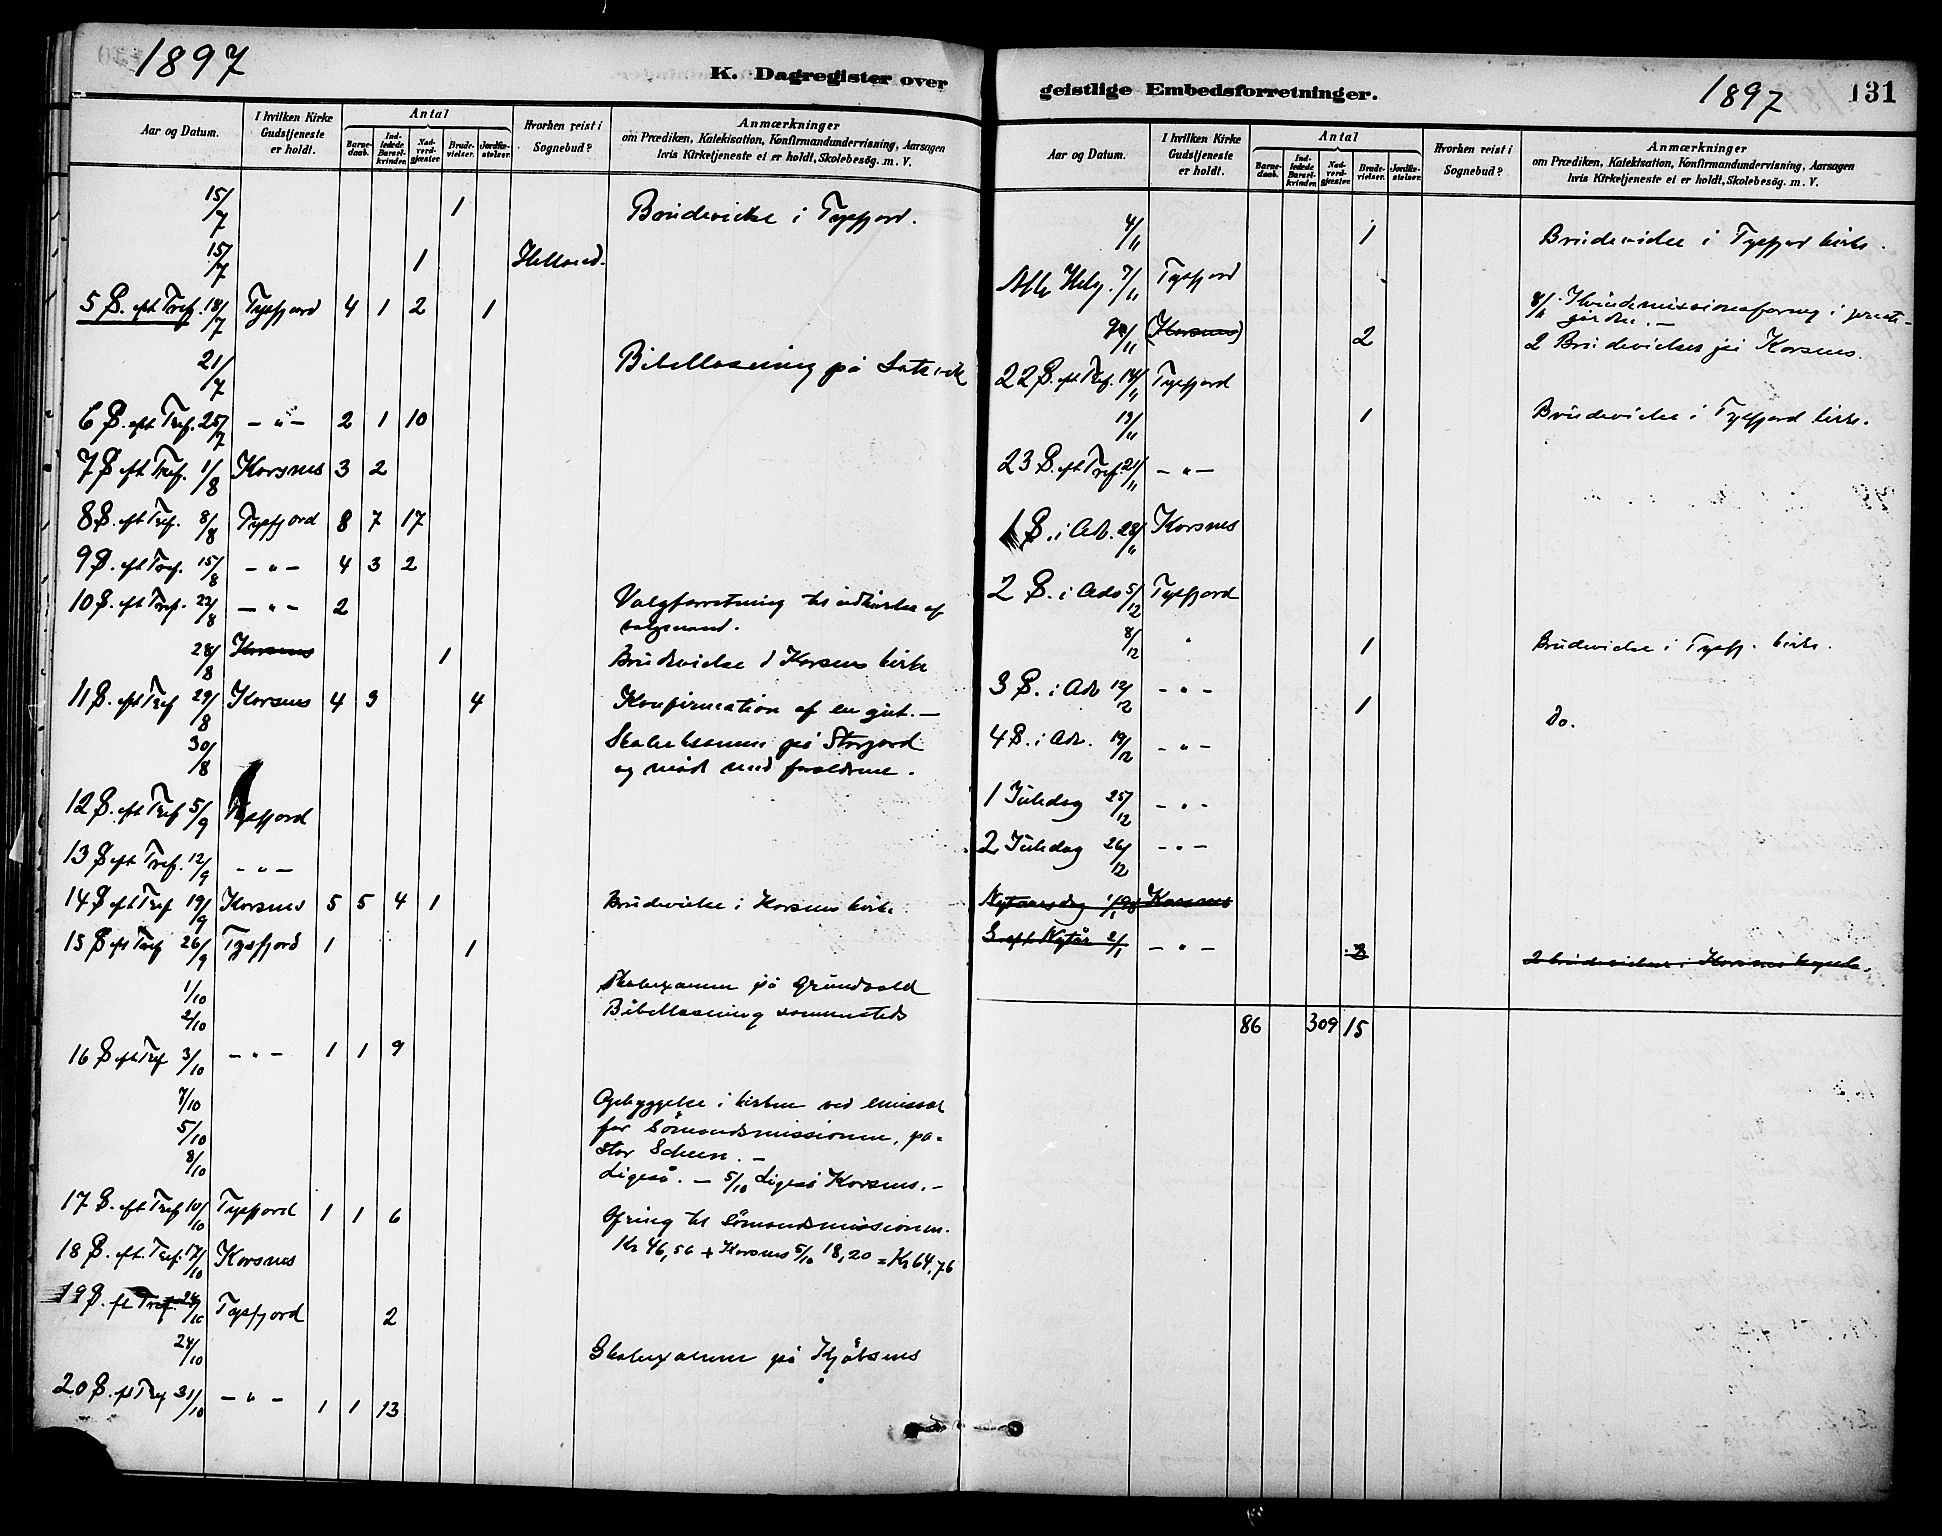 1897
K. Dagregister over
Aar og Datum.
I hvilken Kirke Gudstjeneste er holdt.
Antal
Barnedaab.
Indledede Barselkvinder.
Nadverdgjester.
Brudevielser.
Jordfæstelser.
Hvorhen reist i Sognebud?
Anmærkninger
om Prædiken, Katekisation, Konfirmandundervisning, Aarsagen
hvis Kirketjeneste ei er holdt, Skolebesög. m. V.
15/7 1 Brudevielse i Tysfjord.
15/7 1 Helland.
5 S. eft Tref. 18/7 Tysfjord 4 1 2 1
21/7 Bibellæsning på
6 S. eft Tref. 25/7 — " — 2 1 10
7 S eft Tref. 1/8 Korsnes 3 2
8 S. eft Tref. 8/8 Tysfjord 8 7 17
9 S. eft Tref. 15/8 — " — 4 3 2
10 S. eft Tref. 22/8 — " — 2 Valgforretning til udkårelse af
valgmænd.
28/8 Korsnes 1 Brudevielse i Korsnes kirke
11 S. eft Tref 29/8 Korsnes 4 3 4 Konfirmation af en gut. —
30/8 på Storjord
og møde med forældrene.
12 S. eft Tref 5/9 Tysfjord
13 S eft Tref. 12/9 — " —
14 S eft Tref 19/9 Korsnes 5 5 4 1 Brudevielse i Korsnes kirke
15 S eft Tref 26/9 Tysfjord 1 1
1/10 Skolexamen på Grundvold
2/10 Bibellæsning sammesteds
16 S eft Tref 3/10 — " — 1 1 9
7/10 Opbyggelse i kirken ved emissær
5/10 for Sømandsmissionen, pa-
8/10 stor Scheen. —
Ligeså. — 5/10 Ligeså Korsnes. —
17 S. eft Tref 10/10 Tysfjord 1 1 6 Ofring til Sømandsmissionen.
18 S. eft. Tref. 17/10 Korsnes Kr 46,56 + Korsnes 5/10 18,20 = Kr 64,76
19 S. ft Tref. 24/10 Tysfjord 2
24/10 Skolexamen på Kjøbsnes
20 S. ft Tref 31/10 — " — 1 1 13
geistlige Embedsforretninger.
1897
131
Aar og Datum.
I hvilken Kirke Gudstjeneste er holdt.
Antal
Barnedaab.
Indledede Barselkvinder.
Nadverdgjester.
Brudevielser.
Jordfæstelser.
Hvorhen reist i Sognebud?
Anmærkninger
om Prædiken, Katekisation, Konfirmandundervisning, Aarsagen
hvis Kirketjeneste ei er holdt, Skolebesög. m. V.
4/11 1 Brudevielse i Tysfjord kirke.
Alle Helg. 7/11 Tysfjord
8/11 Kvindemissionsforening i preste-
gården. —
(Korsnes) 2 2 Brudevielser på Korsnes.
22 S. eft Tref. 14/11 Tysfjord
1 Brudevielse i Tysfjord kirke.
23 S. eft Tref. 21/11 — " —
1 S. i Adv. 28/11 Korsnes
2 S. i Adv 5/12 Tysfjord
8/12 " 1 Brudevielse i Tysfj. kirke.
3 S. i Adv 12/12 — " — 1 Do.
4 S. i Adv. 19/12 — " —
1 Juledag 25/12 — " —
2 Juledag 26/12 — " —
Nytaarsdag 1/1 98 Korsnes
S. eft Nytår 2/1 — " — 2 2 brudevielser i Korsnes
86 309 15